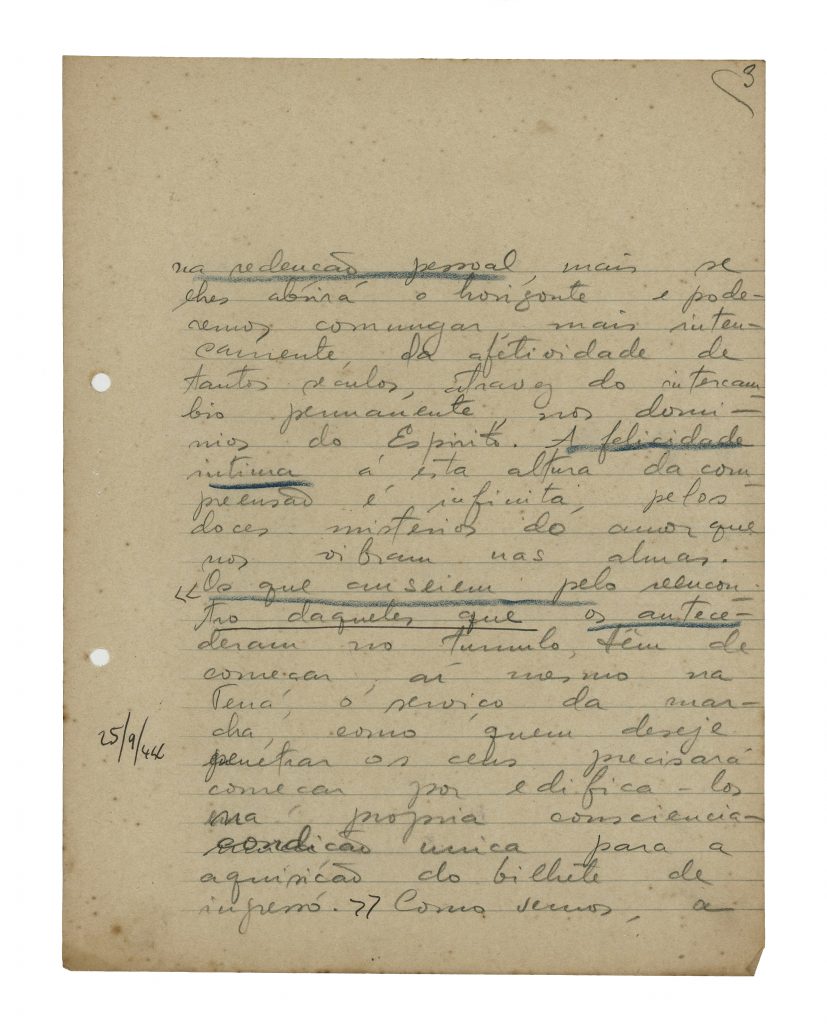 3
na redenção pessoal, mais se
lhes abrirá o horizonte e pode-
remos comungar, mais inten-
samente, da afetividade de
tantos séculos, atravez do intercam
bio permanente, nos domi-
nios do Espirito. A felicidade
intima á esta altura da com
preensão é infinita, pelos
doces mistérios do amor que
nos vibram nas almas.
<< Os que anseiem pelo reencon-
tro daqueles que os antece-
deram no tumulo, têm de
começar, aí mesmo na
Terra, o serviço da mar-
cha, como quem deseje
25/9/44
penétrar os céus precisará
começar por edifica-los
na propria consciencia-
condição unica para a
aquisição do bilhête de
ingresso. >> Como vemos, a